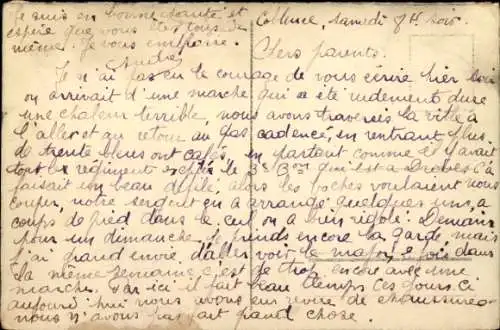 Coblence, samedi 8h soir.
Chers parents.
Je n'ai pas eu le courage de vous écrire hier soir
on arrivait d'une marche qui a été rudement dure
une chaleur terrible, nous avons traversés la ville à
l'aller et au retour au pas cadencé, en rentrant plus
de trente bleus ont calés, en partant comme il y avait
tout le régiment excepté le 3e Bon qui est à
faisait un beau défilé, alors les boches voulaient nous
couper, notre sergent en a arrangé quelques uns, à
coups de pied dans le cul on a bien rigolé. Demain
pour un dimanche je prends encore la garde, mais
j'ai grand envie d'aller voir le major, 2 fois dans
la même semaine c'est de trop, encore avec une
marche. Par ici il fait beau temps ces jours ci
aujourd'hui nous avons eu revue de chaussures
nous n'avons pas fait grand chose.
Je suis en bonne santé et
espère que vous êtes tous de
même. Je vous embrasse.
André